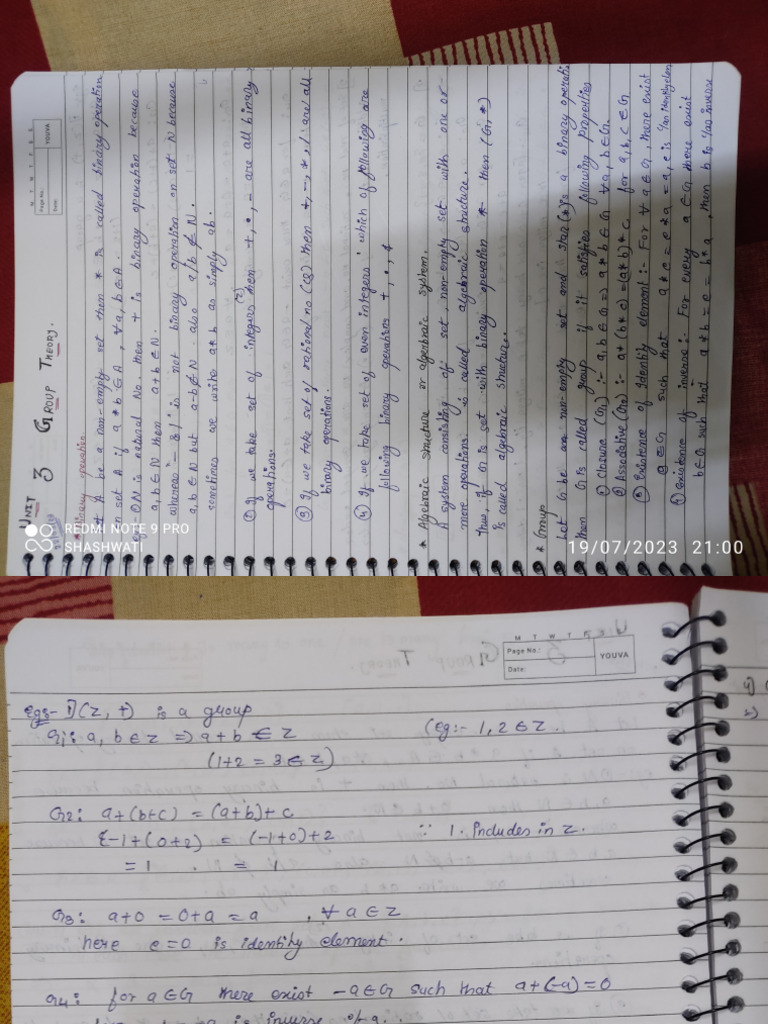 M T W T F S
Page No.:
Date:
YOUVA
UNIT 3 GROUP THEORY.
* Binary operation.
let A be a non-empty set then * is called binary operation
on set A if a * b ∈ A , ∀ a, b ∈ A.
① N is natural No then + is binary operation because
a, b ∈ N then a+b ∈ N.
whereas '-' & '/' is not binary operation on set N because
a, b ∈ N but a-b ∉ N. also a/b ∉ N.
sometimes we write a * b as simply ab.
② If we take set of integers (Z) then +, •, - are all binary
operations.
③ If we take set of rational no (Q) then +, -, *, / are all
binary operations.
④ If we take set of even integers' which of following are
following binary operations +, •,
* Algebraic structure or algebraic system.
A system consisting of set, non-empty set with one or
more operations is called algebraic structure.
thus, if G is set with binary operation * then (G, *)
is called algebraic structure.
* Group
Let G be an non-empty set and star(*) is a binary operati
then G is called group if it satisfies following properties
① Closure (G1) :- a, b ∈ G ⇒ a * b ∈ G ∀ a, b ∈ G.
② Associative (G2) :- a * (b * c) = (a * b) * c for a, b, c ∈ G
③ Existence of identity element :- For ∀ a ∈ G, there exist
e ∈ G such that a * e = e * a = a, e is identity elem
④ existence of inverse :- For every a ∈ G there exist
b ∈ G such that a * b = e = b * a , then b is inverse
REDMI NOTE 9 PRO
SHASHWATI
19/07/2023 21:00
M T W T F
Page No.:
Date:
YOUVA
Egs:- 1) (Z, +) is a group
G1: a, b ∈ Z ⇒ a + b ∈ Z (eg:- 1, 2 ∈ Z.
(1+2 = 3 ∈ Z)
G2: a+(b+c) = (a+b)+c
{-1+(0+2) = (-1+0)+2 ∵ 1 includes in Z.
= 1 = 1
G3: a+0 = 0+a = a , ∀ a ∈ Z
here e=0 is identity element.
G4: for a ∈ G there exist -a ∈ G such that a+(-a)=0
is inverse of a.